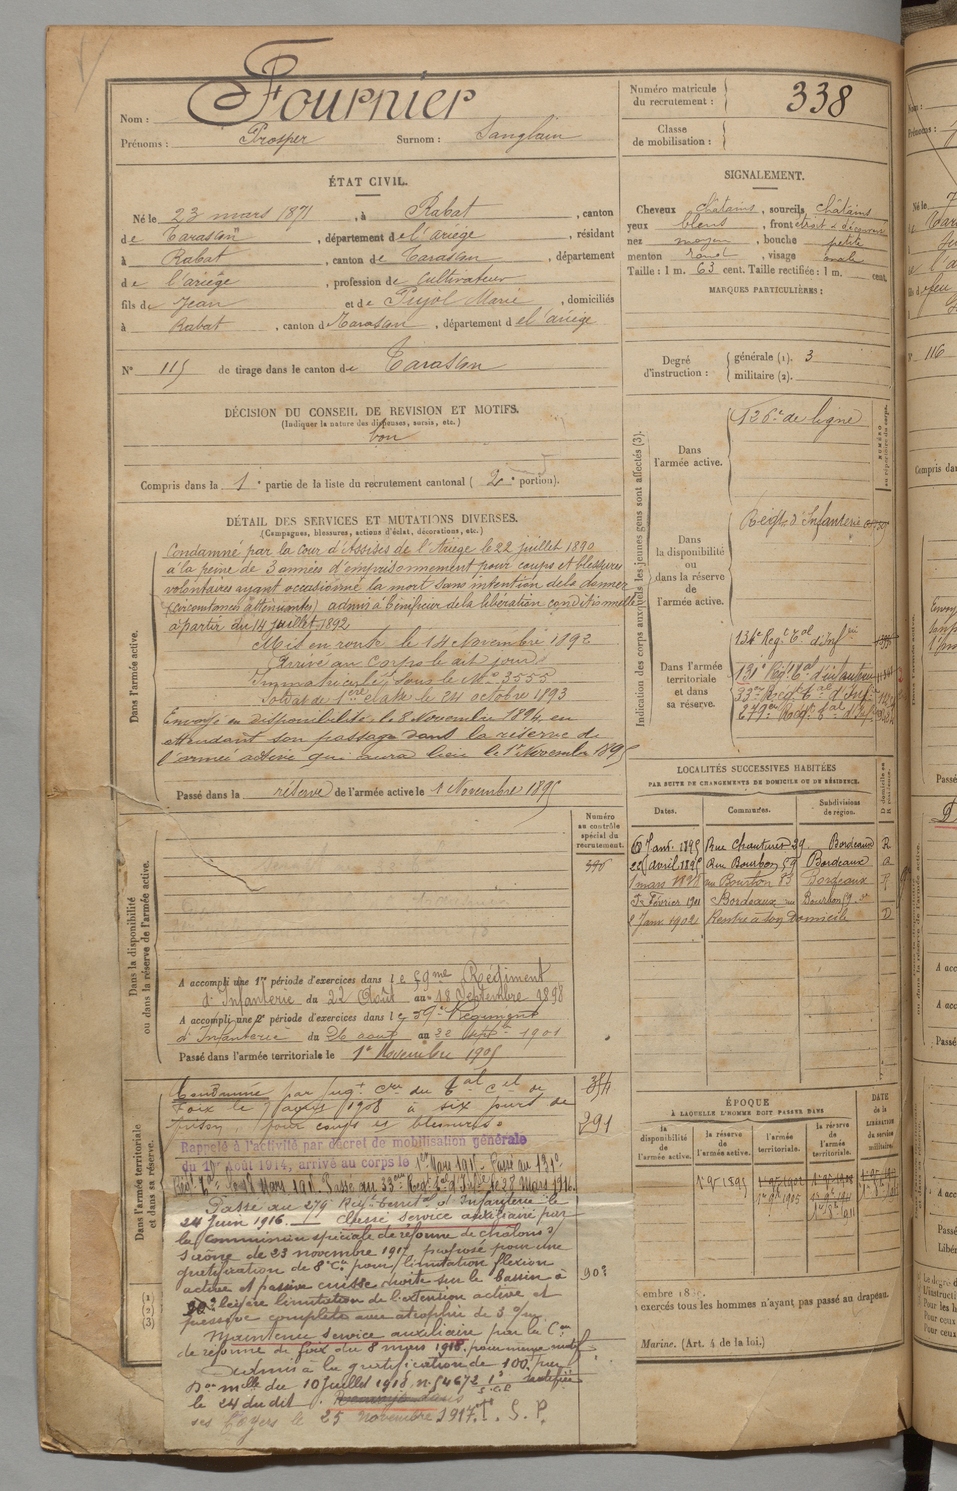 Nom : Fournier
Prénoms : Prosper Surnom : Sanglain
Numéro matricule
du recrutement : 338
Classe
de mobilisation :
ÉTAT CIVIL.
Né le 23 mars 1871, à Rabat, canton
de Tarascon, département de l'ariège, résidant
à Rabat, canton de Tarascon, département
de l'ariège, profession de Cultivateur
fils de Jean et de Pujol Marie, domiciliés
à Rabat, canton de Tarascon, département de l'ariège
N° 115 de tirage dans le canton de Tarascon
SIGNALEMENT.
Cheveux châtains, sourcils châtains
yeux bleus, front étroit découvert
nez moyen, bouche petite
menton rond, visage ovale
Taille : 1 m. 63 cent. Taille rectifiée : 1 m. cent.
MARQUES PARTICULIÈRES :
Degré
d'instruction :
générale (1). 3
militaire (2).
DÉCISION DU CONSEIL DE REVISION ET MOTIFS.
(Indiquer la nature des dispenses, sursis, etc.)
bon
Compris dans la 1e partie de la liste du recrutement cantonal (2e portion).
DÉTAIL DES SERVICES ET MUTATIONS DIVERSES.
(Campagnes, blessures, actions d'éclat, décorations, etc.)
Dans l'armée active.
Condamné par la Cour d'Assises de l'Ariège le 22 juillet 1890
à la peine de 3 années d'emprisonnement pour coups et blessures
volontaires ayant occasionné la mort sans intention de la donner
(circonstances atténuantes) admis à bénéficier de la libération conditionnelle
à partir du 14 juillet 1892
Mis en route le 14 Novembre 1892
Arrivé au Corps le dit jour
Immatriculé sous le N° 3555
Soldat de 1ère classe le 24 octobre 1893
Envoyé en disponibilité le 8 Novembre 1894, en
attendant son passage dans la réserve de
l'armée active qui aura lieu le 1er Novembre 1895
Passé dans la réserve de l'armée active le 1 Novembre 1895
Indication des corps auxquels les jeunes gens sont affectés (3).
NUMÉRO
au répertoire du corps.
Dans
l'armée active.
126e de ligne
Dans
la disponibilité
ou
dans la réserve
de
l'armée active.
Régt d'Infanterie
Dans l'armée
territoriale
et dans
sa réserve.
134e Regt Tal d'Inf
131e Régt Tal d'infanterie
33me Regt Tal d'Inf
279me Regt Tal d'Inf
LOCALITÉS SUCCESSIVES HABITÉES
PAR SUITE DE CHANGEMENTS DE DOMICILE OU DE RÉSIDENCE.
Dates. Communes. Subdivisions de région. D domicile ou R résidence.
6 Janv. 1895 Rue Chantecrit 29 Bordeaux R
20 avril 1895 Rue Bourbon 59 Bordeaux R
1 mars 1898 Bourbon 83 Bordeaux R
Février 1901 Bordeaux Bourbon 59
2 Janv 1902 Rentré à son Domicile D
Numéro
au contrôle
spécial du
recrutement.
Dans la disponibilité
ou dans la réserve de l'armée active.
A accompli une 1re période d'exercices dans le 59me Régiment
d'Infanterie du 22 Août au 18 Septembre 1898
A accompli une 2e période d'exercices dans le 59e Régiment
d'Infanterie du 26 août au 22 Septbre 1901
Passé dans l'armée territoriale le 1er Novembre 1905
Dans l'armée territoriale
et dans sa réserve.
354
291
Condamné par jugt du Tal Cel de
Foix le 7 avril 1908 à six jours de
prison, pour coups et blessures.
Rappelé à l'activité par décret de mobilisation générale
du 1er Août 1914, arrivé au corps le 1er Mars 1915 - Passé au 131e
Passé au 33me Regt Tal d'Infie le 28 Mars 1916.
Passé au 279 Regt territal d'Infanterie le
24 Juin 1916. Classé service auxiliaire par
la Commission spéciale de réforme de chalons s/
Saône de 23 novembre 1917 proposé pour une
gratification de 8e Cie pour limitation flexion
active et passive cuisse droite sur le bassin à
90° légère limitation de l'extention active et
passive complète avec atrophie de 3 c/m
Maintenu service auxiliaire par la Con
de réforme de foix du 8 mars 1918, pour même motif
Admis à la gratification de 100 par
Don mlle du 10 Juillet 1918, n. 54672 notifiée
le 24 du dit.
ses foyers le 25 novembre 1917. I. S. P.
90°
(1)
(2)
(3)
ÉPOQUE
À LAQUELLE L'HOMME DOIT PASSER DANS
la disponibilité de l'armée active. la réserve de l'armée active. l'armée territoriale. la réserve de l'armée territoriale.
DATE de la LIBÉRATION du service militaire.
1er 9bre 1895 1er 9bre 1905 1er 8bre 1911
exercés tous les hommes n'ayant pas passé au drapeau.
Marine. (Art. 4 de la loi.)